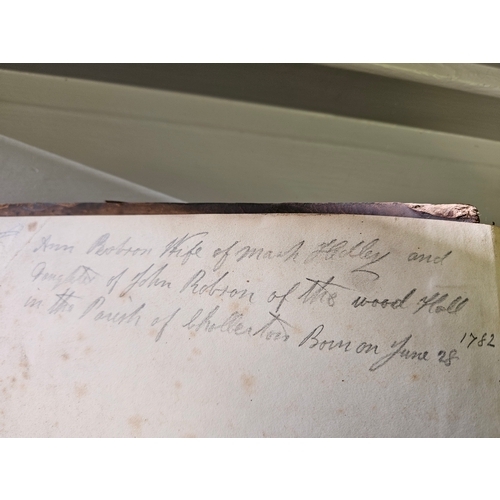 Ann Robson Wife of Mark Hedley and
Daughter of John Robson of the wood Hall
in the Parish of Chollerton Born on June 28 1782